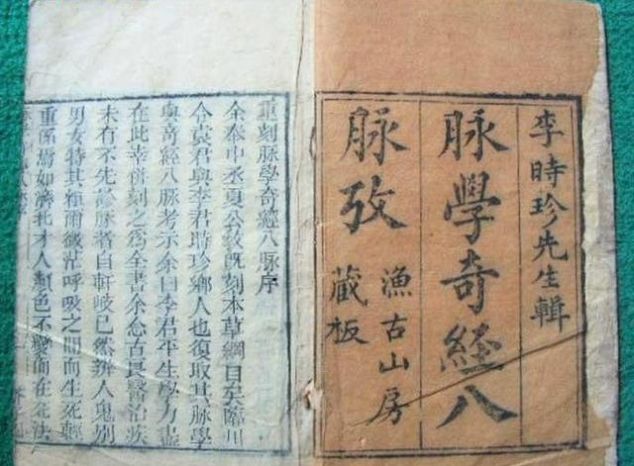 李時珍先生輯
脉學奇経八
脉攷
漁古山房
藏板
重刻脉學奇經八脉序
余奉中丞夏公敎旣刻本草綱目矣臨川
令袁君與李君時珍鄉人也復取其脉學
與奇經八脉考示余曰李君平生學力盡
在此幸併刻之爲全書余念古良醫治疾
未有不先診脉者自軒岐已然辨人鬼別
男女特其極爾微茫呼吸之間而生死輕
重係焉如濟北才人顏色不變而在死法